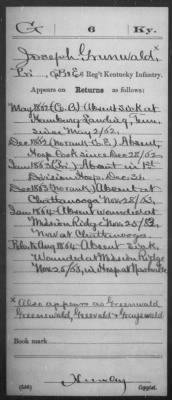 G 6 Ky.
Joseph Grunwald x
Pri, Co. B & E 6 Reg't Kentucky Infantry.
Appears on Returns as follows:
May 1862 (Co. B) Absent sick at
Hamburg Landing, Tenn.
since May 2/62.
Dec 1862 (No rank Co. E) Absent,
Hosp Cook since Dec 28/62
Jan 1863 (Pri) Absent in 1st
Division Hosp. Dec. 31
Dec 1863 (No rank) Absent at
Chattanooga Nov 25/63,
Jan 1864 Absent wounded at
Mission Ridge Nov. 25/63,
Now at Chattanooga.
Feb to Aug 1864 Absent sick,
Wounded at Mission Ridge
Nov. 25/63, in Hosp at Nashville
x Also appears as Greenwald
Greenewald,
Book mark:
(546) Copyist.